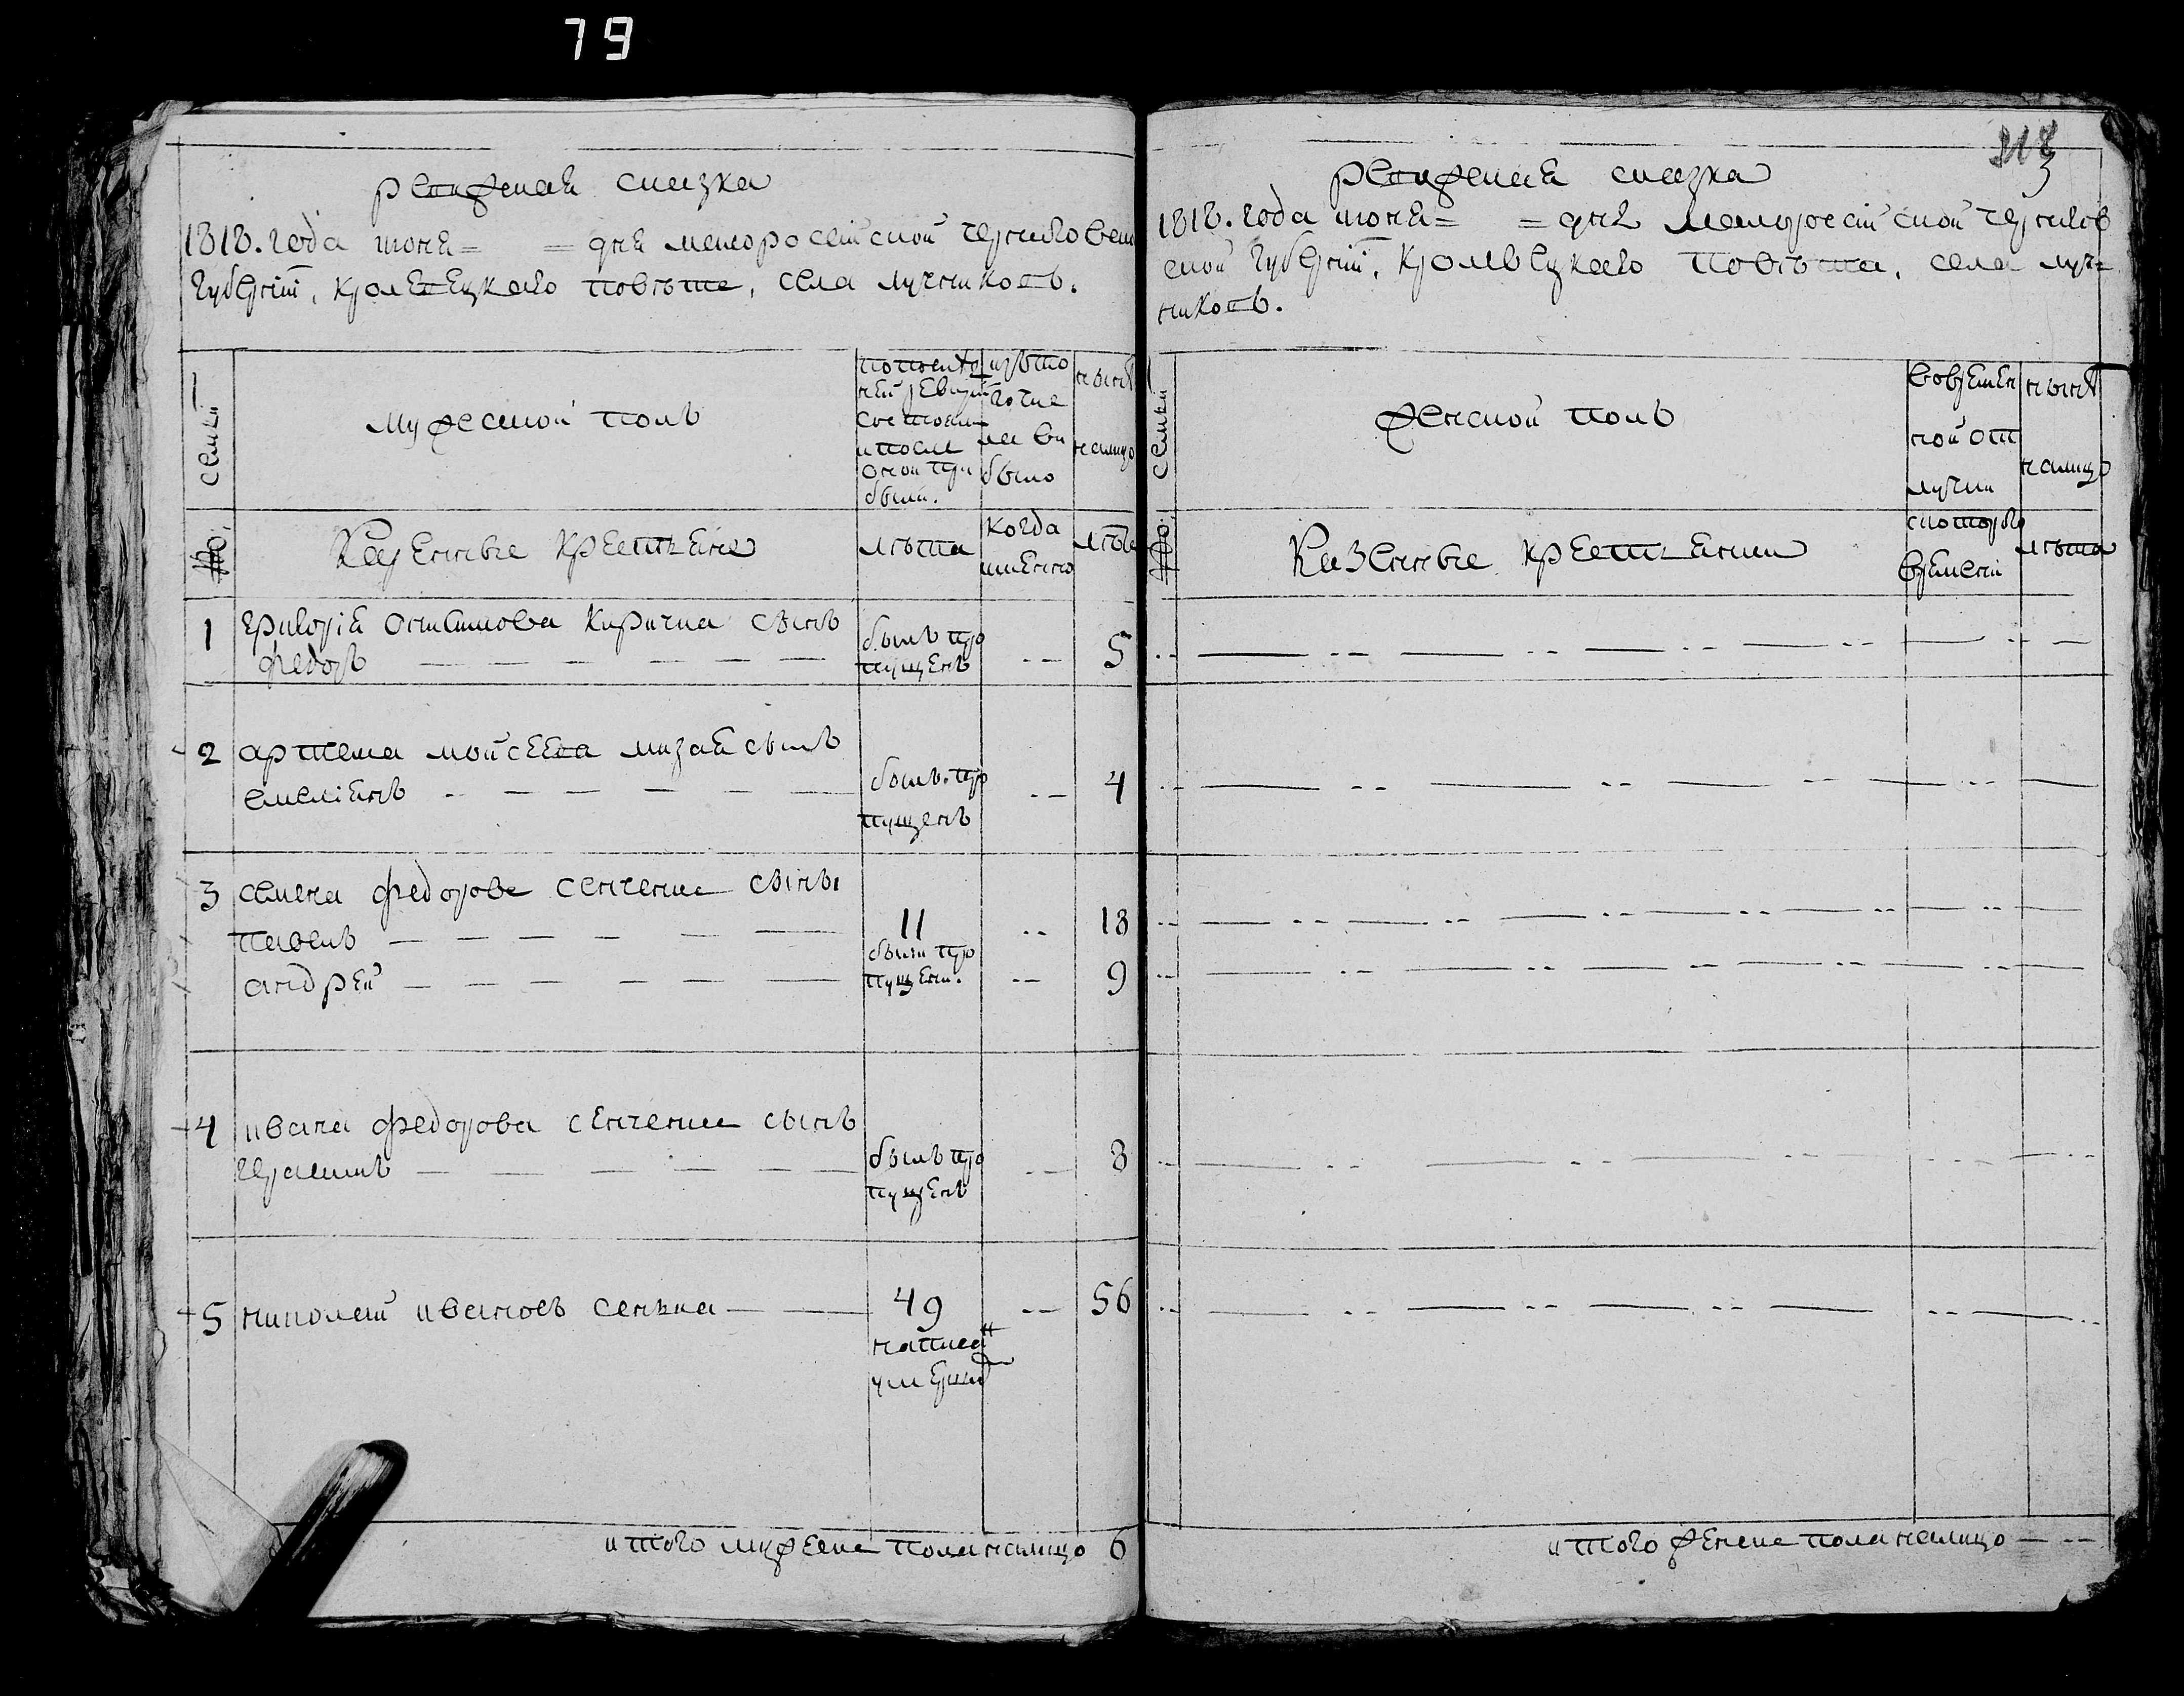 79
ревизская сказка
1818. года июня= = дня малоросійской черниговской
губерній, кролевецкаго повѣта, села лучниковъ.
семьи
мужеской полъ
по послѣд
ней ревизіи
состояло
и после
оной при
были.
изъ то
го чис
ла вы
было
нынѣ
налицо
№:
Казенные крестьяне
лѣта
когда
именно
лѣта
1 Григорія Онисимова Киричка сынъ
федоръ
былъ про
пущенъ
-- 5
2 артема мойсеева мизая сынъ
емеліянъ
былъ про
пущенъ
-- 4
3 семена федорова сенченка сыны
павелъ 11 -- 18
андрей
были про
пущены.
-- 9
4 ивана федорова сенченка сынъ
герасимъ
былъ про
пущенъ
-- 8
5 николай ивановъ сенька 49 -- 56
написа
умершимъ
итого мужеска пола налицо 6
ревизская сказка
1818. года июня= = дня малоросійской чернигов
ской губерній, Кролевецкаго повѣта, села луч=
никовъ.
семьи
женской полъ
во времен
ной от
лучки
нынѣ
налицо
№:
Казенные крестьянки
с котораго
времени
лѣта
итого женска пола налицо -- --